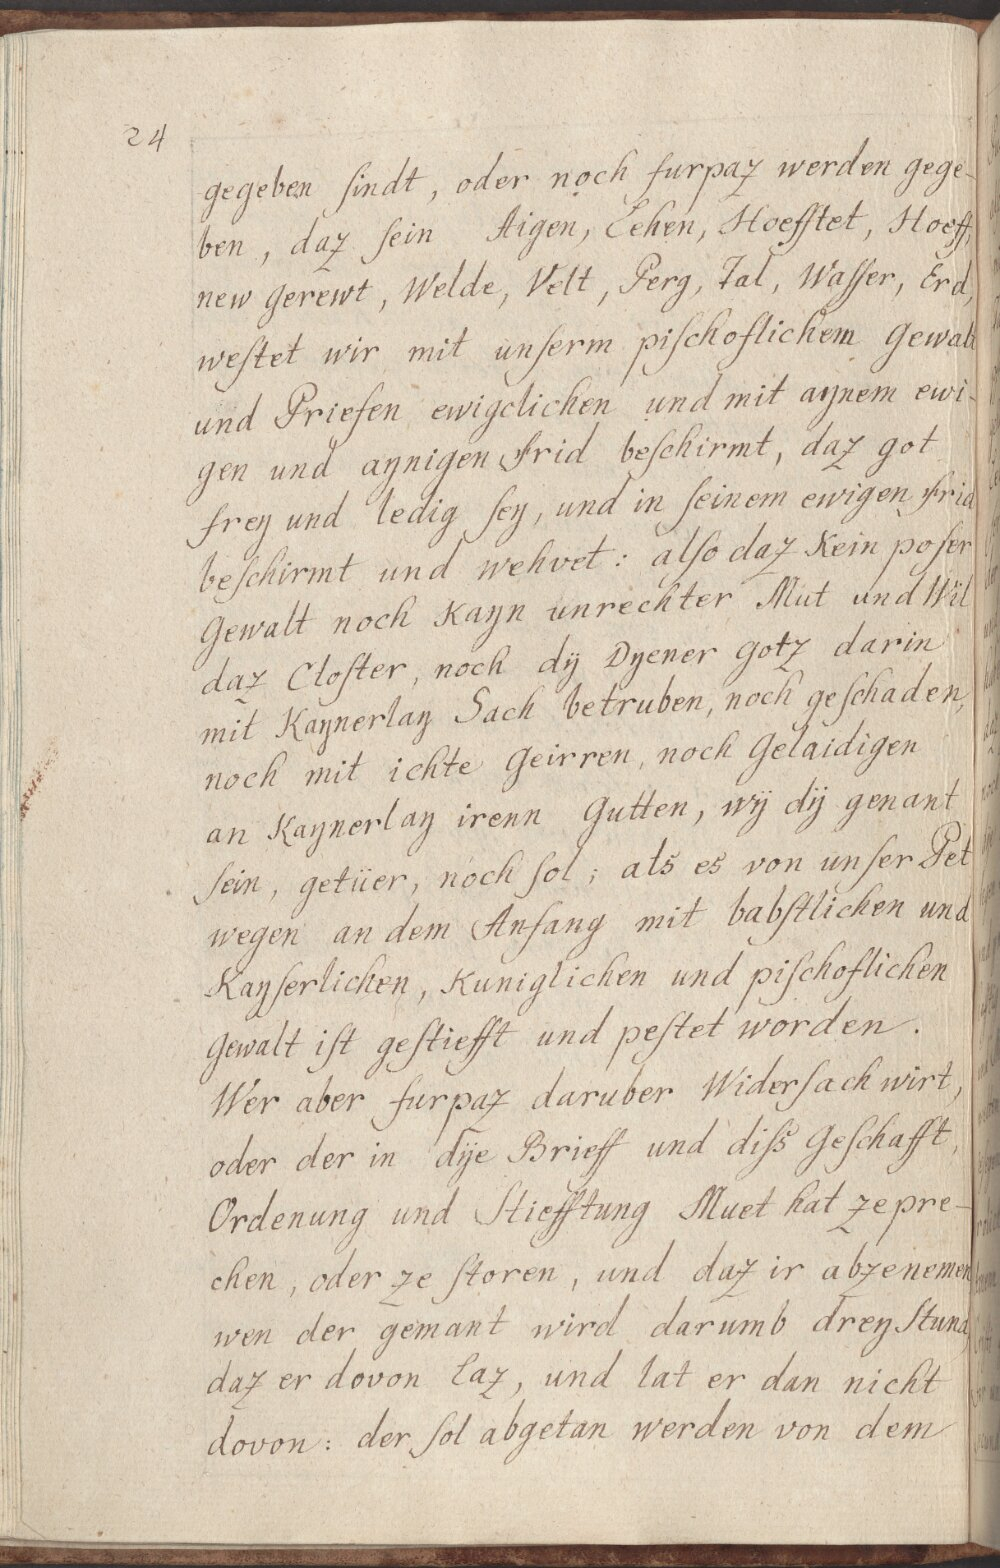 24
gegeben sindt, oder noch furpaz werden gege-
ben, daz sein Aigen, Lehen, Hoefftet, Hoeff,
new Gerewt, Welde, Velt, Perg, Tal, Wasser, Erd,
westet wir mit unserm pischoflichem Gewalt
und Priefen ewigclichen und mit aynem ewi-
gen und aynigen Frid beschirmt, daz got
frey und ledig sey, und in seinem ewigen Frid
beschirmt und wehvet: also daz Kein poser
Gewalt noch Kayn unrechter Mut und Wil
daz Closter, noch dÿ Dyener Gotz darin
mit Kaynerlay Sach betruben, noch geschaden,
noch mit ichte Geirren, noch Gelaidigen
an Kaynerlay irenn Gutten, wÿ dÿ genant
sein, getüer, noch sol; als es von unser Pet
wegen an dem Anfang mit babstlichen und
Kayserlichen, Kuniglichen und pischoflichen
Gewalt ist gestiefft und pestet worden.
Wer aber furpaz daruber Widersach wirt,
oder der in dÿe Brieff und diss Geschafft,
Ordenung und Stiefftung Muet hat zepre-
chen, oder ze storen, und daz ir abzenemen
wen der gemant wird darumb drey Stund,
daz er dovon laz, und lat er dan nicht
dovon: der sol abgetan werden von dem